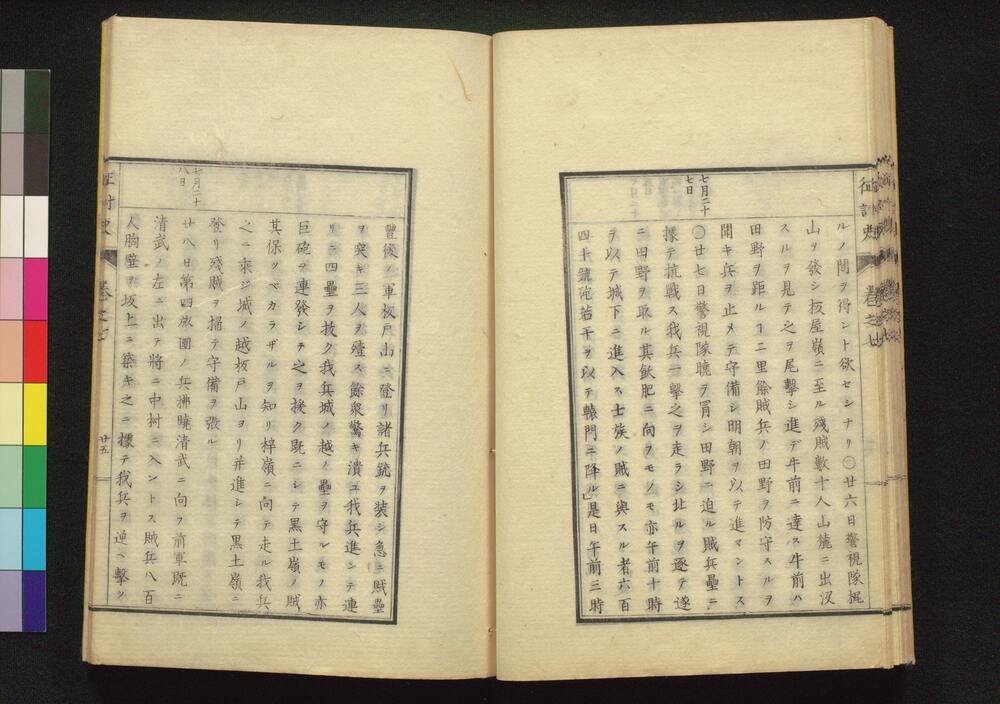 征討史 卷之七
ルノ間ヲ得ント欲セシナリ〇廿六日警視隊梶
山ヲ發シ板屋嶺ニ至ル殘賊數十人山麓ニ出沒
スルヲ見テ之ヲ尾擊シ進デ牛前ニ達ス牛前ハ
田野ヲ距ルヿ二里餘賊兵ノ田野ヲ防守スルヲ
聞キ兵ヲ止メテ守備シ明朝ヲ以テ進マントス
七月二十七日
〇廿七日警視隊曉ヲ冐シ田野ニ迫ル賊兵壘ニ
據テ抗戰ス我兵一擊之ヲ走ラシ北ルヲ逐テ遂
ニ田野ヲ取ル其飫肥ニ向フモノモ亦午前十時
ヲ以テ城下ニ進入ス士族ノ賊ニ與スル者六百
四十銃砲若干ヲ以テ轅門ニ降ル」是日午前三時
豐後ノ軍板戸山ニ登リ諸兵銃ヲ装シ急ニ賊壘
ヲ突キ三人ヲ殪ス餘衆驚キ潰ユ我兵進シテ連
リニ四壘ヲ拔ク我兵城ノ越ノ壘ヲ守ルモノ亦
巨砲ヲ連發シテ之ヲ援ク既ニシテ黒土嶺ノ賊
其保ツベカラザルヲ知リ梓嶺ニ向テ走ル我兵
之ニ乘ジ城ノ越板戸山ヨリ并進シテ黒土嶺ニ
登リ殘賊ヲ掃テ守備ヲ張ル
七月二十八日
廿八日第四旅團ノ兵拂曉清武ニ向フ前軍既ニ
清武ノ左ニ出テ將ニ中村ニ入ントス賊兵八百
人胸壁ヲ坂上ニ築キ之ニ據テ我兵ヲ逆ヘ擊ツ
征討史 卷之七 廿五